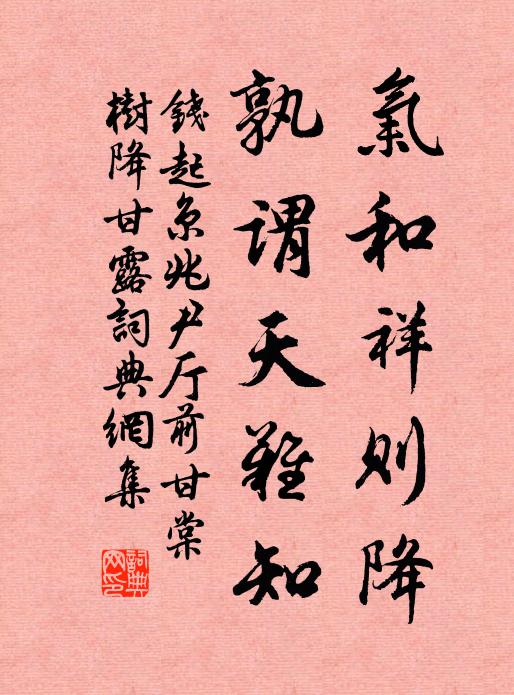 氣和祥則降
孰謂天難知
錢起京兆尹厅前甘棠
樹降甘露詞典網集
詞典网印